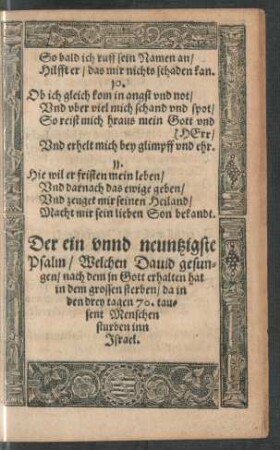 So bald ich ruff sein Namen an/
Hilfft er/ das mir nichts schaden kan.
10.
Ob ich gleich kom in angst vnd not/
Vnd vber viel mich schand vnd spot/
So reist mich hraus mein Gott vnd
(HErr/
Vnd erhelt mich bey glimpff vnd ehr.
11.
Hie wil er fristen mein leben/
Vnd darnach das ewige geben/
Vnd zeuget mir seinen Heiland/
Macht mir sein lieben Son bekandt.
Der ein vnnd neuntzigste
Psalm/ Welchen Dauid gesun-
gen/ nach dem in Gott erhalten hat
in dem grossen sterben/ da in
den drey tagen 70. tau-
sent Menschen
sturben inn
Israel.